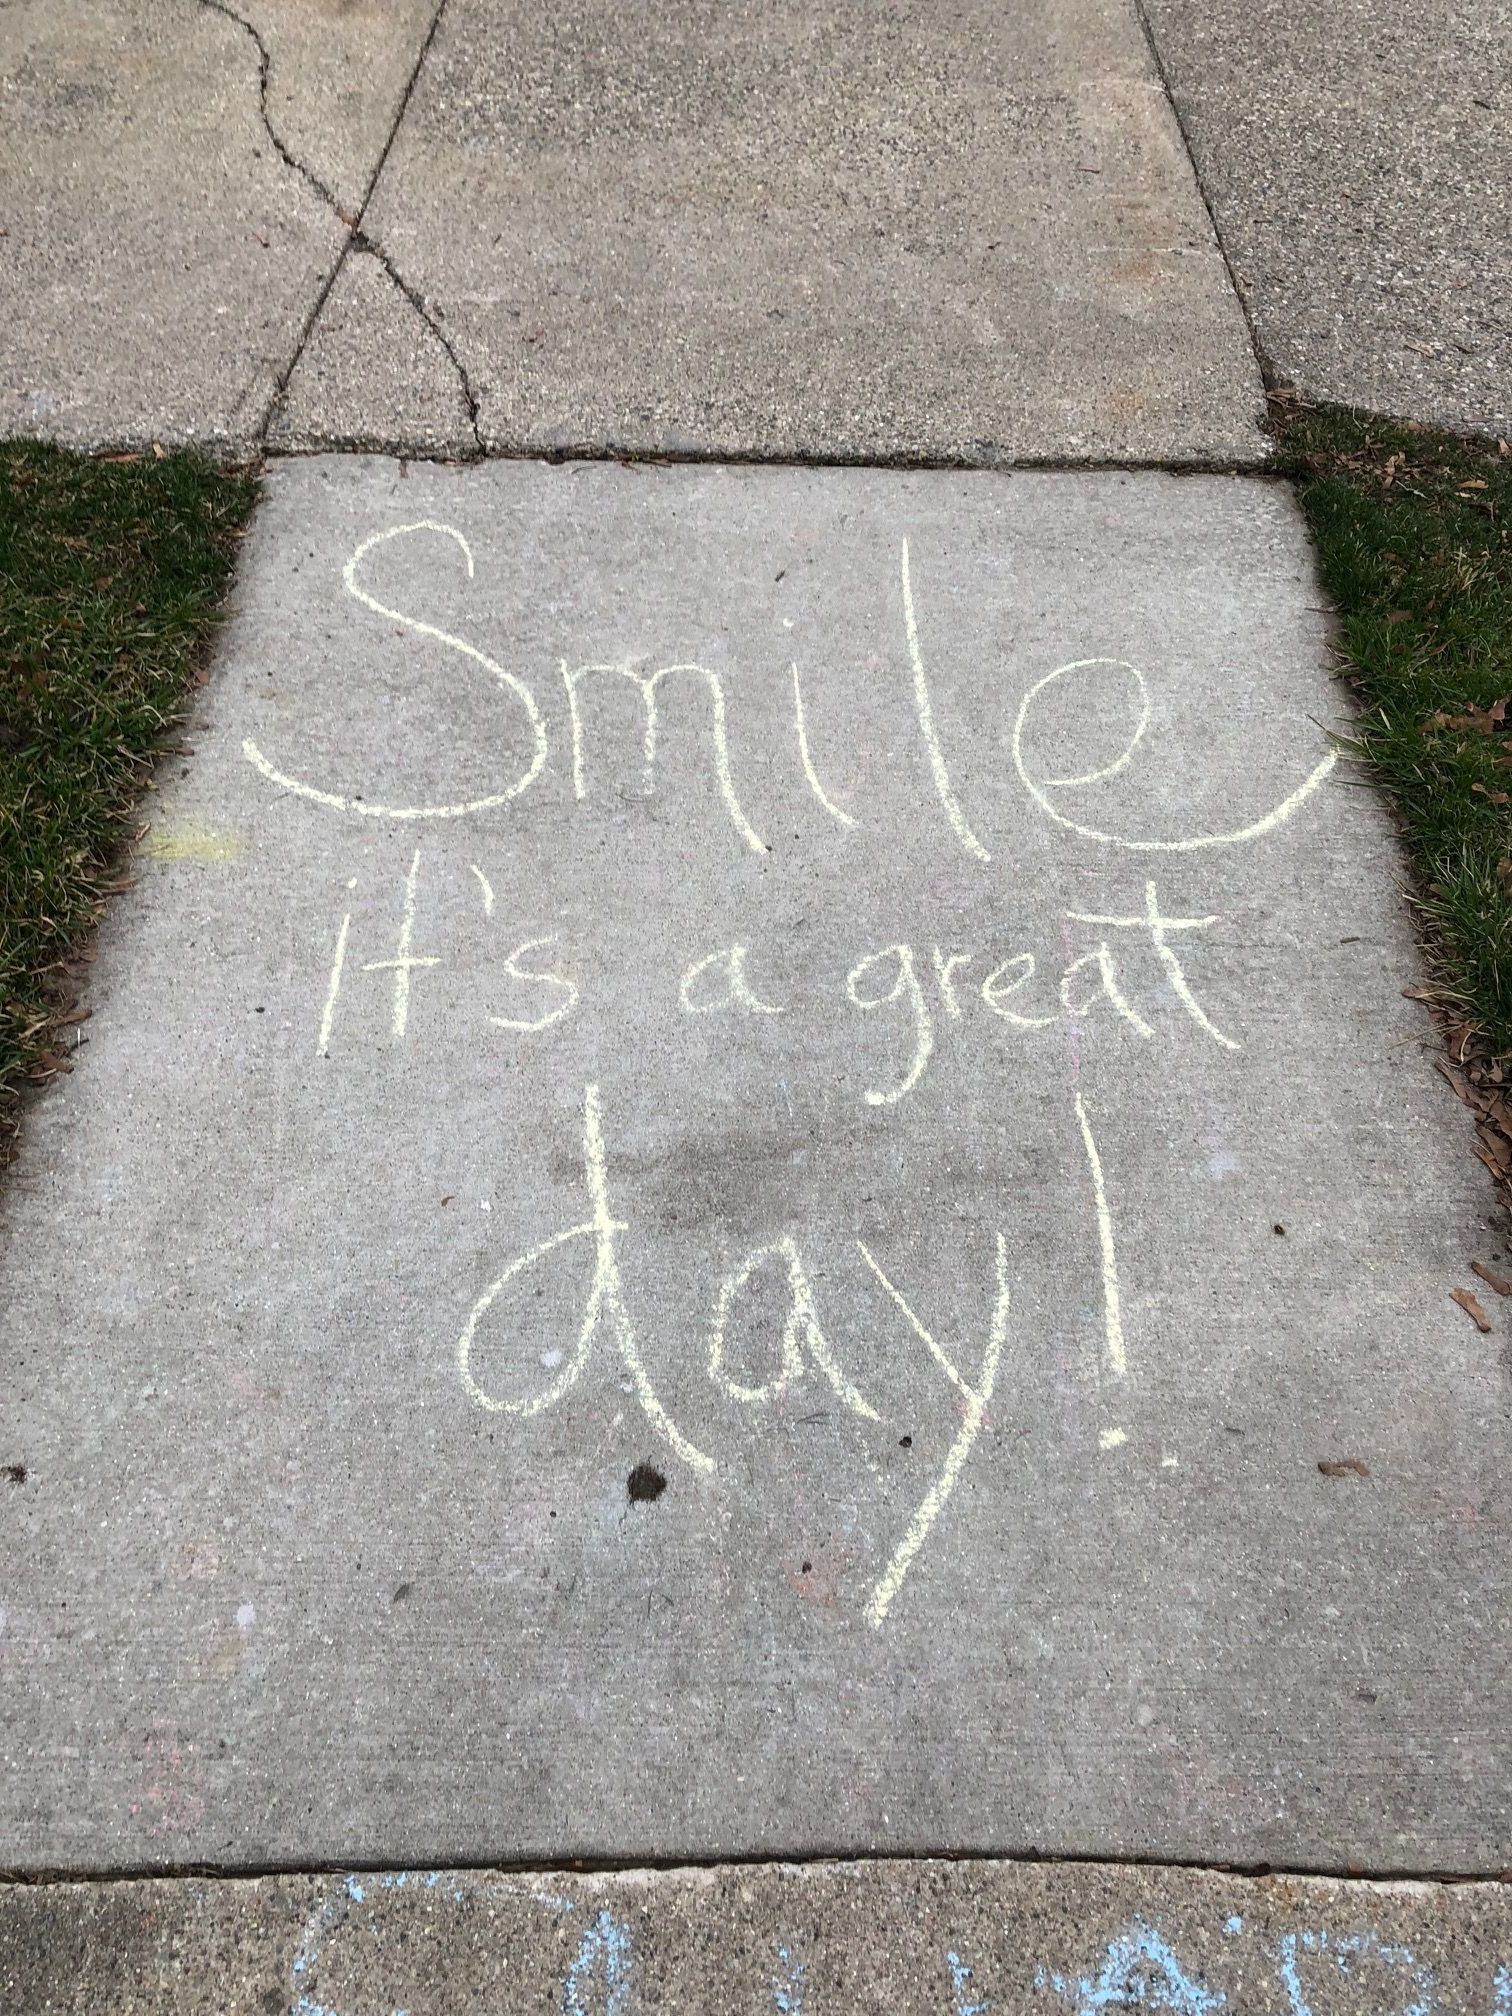 Smile
it's a great
day!